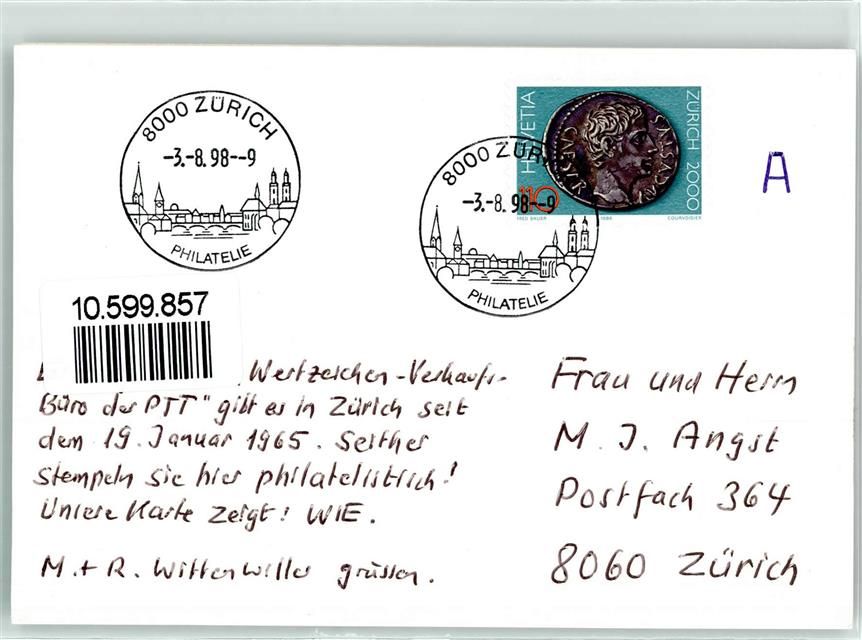 8000 ZÜRICH
-3.-8.98--9
PHILATELIE
8000 ZÜRICH
-3.-8.98--9
PHILATELIE
HELVETIA
110
CAESAR
AVGVSTVS
ZÜRICH 2000
FRED BAUER 1986 COURVOISIER
A
10.599.857
Wertzeichen-Verkaufs-
Büro der PTT" gibt es in Zürich seit
dem 19. Januar 1965. Seither
stempeln sie hier philatelistisch!
Unsere Karte zeigt! WIE.
M. + R. Wittenwiller grüssen.
Frau und Herrn
M. J. Angst
Postfach 364
8060 Zürich